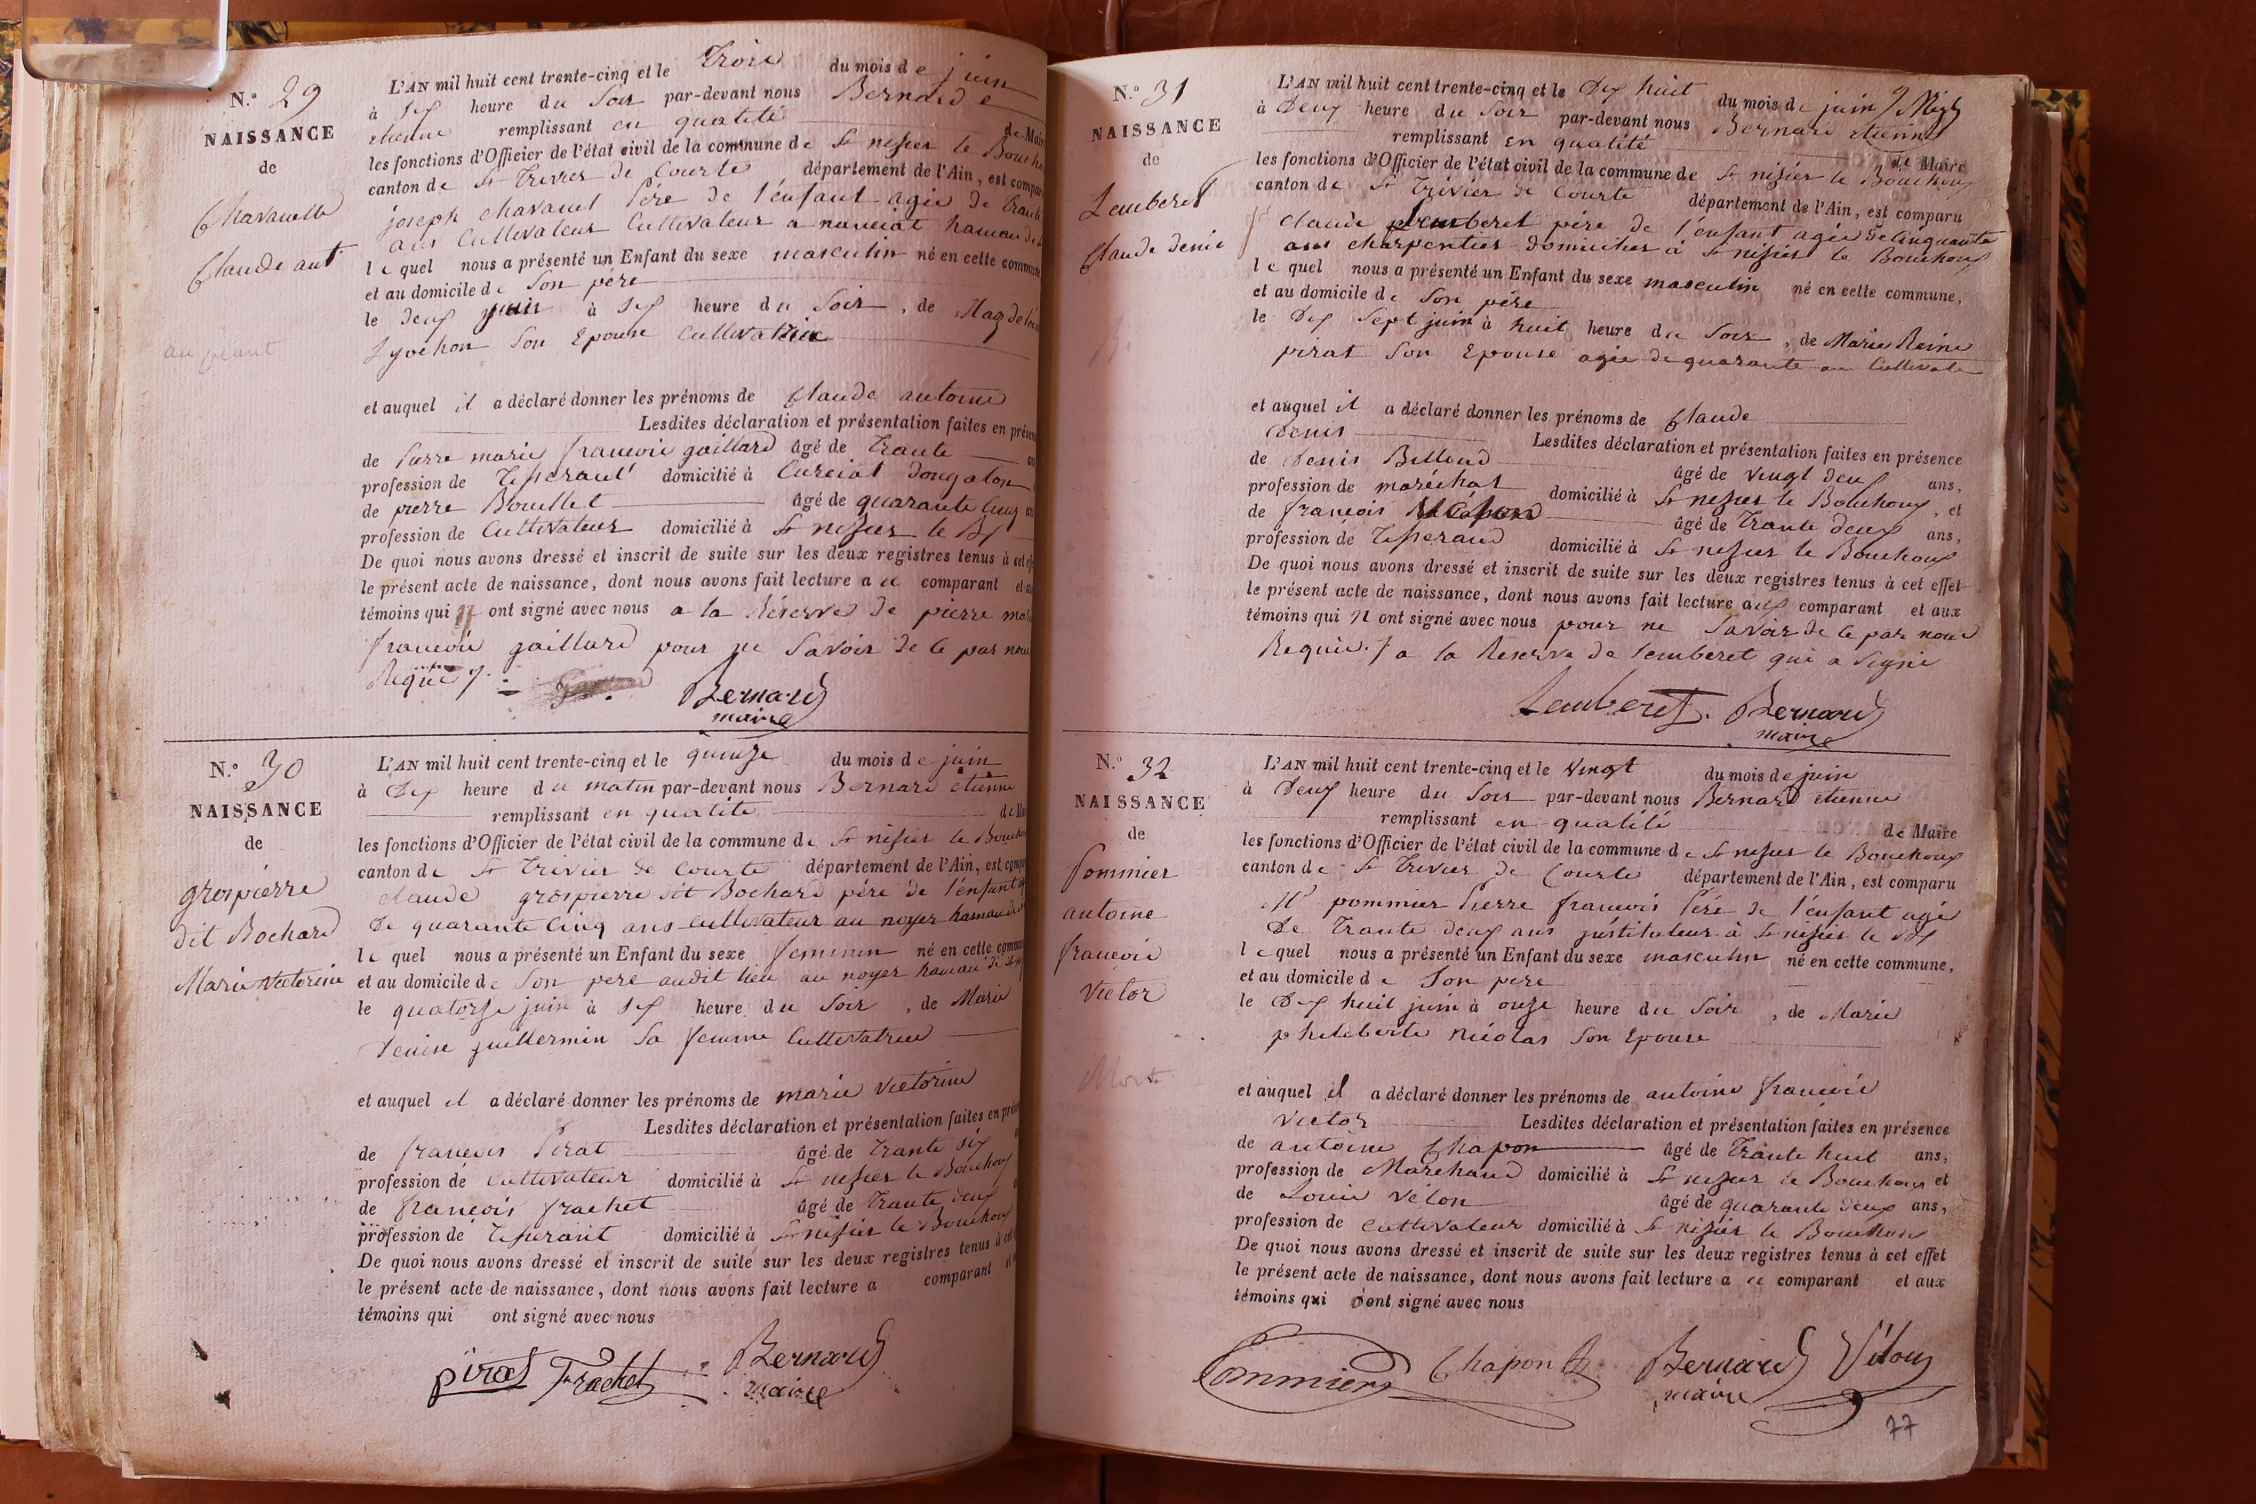 N.° 29
NAISSANCE
de
Chavanelle
Claude ant
au
L'AN mil huit cent trente-cinq et le trois du mois de juin
à six heure du Soir par-devant nous Bernard e
etienne remplissant en qualité de Mair
les fonctions d'Officier de l'état civil de la commune de St nisier le Bouch
canton de St Trivier de Courte département de l'Ain, est compar
joseph chavanel Père de l'enfant agée de trante
ans Cultivateur Cultivateur a hamau de
le quel nous a présenté un Enfant du sexe masculin né en cette commune
et au domicile de Son père
le deux juin à six heure du Soir, de Magdelei
Lyochon Son Epouse Cultivatrice
et auquel il a déclaré donner les prénoms de Claude antoine
Lesdites déclaration et présentation faites en présen
de Pierre marie francois gaillard âgé de trante
profession de Tisserant domicilié à Curciat dongalon
de pierre Bouillet âgé de quarante Cinq
profession de Cultivateur domicilié à St nisier le Bx
De quoi nous avons dressé et inscrit de suite sur les deux registres tenus à cet ef
le présent acte de naissance, dont nous avons fait lecture a ce comparant et au
témoins qui n ont signé avec nous a la Réserve de pierre ma
francois gaillard pour ne Savoir de ce pas nou
Requie /.
Bernard
maire
N.° 30
NAISSANCE
de
grospierre
dit Bochard
Marie Victorine
L'AN mil huit cent trente-cinq et le quinze du mois de juin
à Dix heure du matin par-devant nous Bernard etienne
remplissant en qualité de Ma
les fonctions d'Officier de l'état civil de la commune de St nisier le Bouch
canton de St Trivier de Courte département de l'Ain, est compa
claude grospierre dit Bochard père de l'enfant
De quarante Cinq ans cultivateur au noyer hamau
le quel nous a présenté un Enfant du sexe feminin né en cette commu
et au domicile de Son pere audit lieu au noyer hamau de
le quatorze juin à six heure du Soir, de Marie
Denise guillermin Sa femme Cultivatrice
et auquel il a déclaré donner les prénoms de marie victorine
Lesdites déclaration et présentation faites en prése
de francois Pirat âgé de trante six
profession de Cultivateur domicilié à St nisier le Bouchoux
de francois frachet âgé de trante deux
profession de Tisserant domicilié à St nisier le Bouchoux
De quoi nous avons dressé et inscrit de suite sur les deux registres tenus à cet
le présent acte de naissance, dont nous avons fait lecture a comparant
témoins qui ont signé avec nous
pirat Frachet Bernard
maire
N.° 31
NAISSANCE
de
Lemberet
Claude denis
L'AN mil huit cent trente-cinq et le Dix huit du mois de juin
à Deux heure du Soir par-devant nous Bernard etienne
remplissant en qualité de Maire
les fonctions d'Officier de l'état civil de la commune de St nisier le Bouchoux
canton de St Trivier de Courte département de l'Ain, est comparu
claude Lemberet père de l'enfant agée de cinquante
ans charpentier domicilier à St nisier le Bouchoux
le quel nous a présenté un Enfant du sexe masculin né en cette commune,
et au domicile de Son père
le Dix Sept juin à huit heure du Soir, de Marie Reine
pirat Son Epouse agée de quarante an Cultivate
et auquel il a déclaré donner les prénoms de Claude
Denis Lesdites déclaration et présentation faites en présence
de Denis Billoud âgé de vingt deux ans,
profession de maréchal domicilié à St nisier le Bouchoux, et
de francois âgé de trante deux ans,
profession de Tisserand domicilié à St nisier le Bouchoux
De quoi nous avons dressé et inscrit de suite sur les deux registres tenus à cet effet
le présent acte de naissance, dont nous avons fait lecture aux comparant et aux
témoins qui n ont signé avec nous pour ne Savoir de ce par nous
Requie./ a la Reserve de Lemberet qui a Signé
Lemberet. Bernard
maire
N.° 32
NAISSANCE
de
Pommier
antoine
francois
Victor
Mort
L'AN mil huit cent trente-cinq et le vingt du mois de juin
à Deux heure du Soir par-devant nous Bernard etienne
remplissant en qualité de Maire
les fonctions d'Officier de l'état civil de la commune de St nisier le Bouchoux
canton de St Trivier de Courte département de l'Ain, est comparu
Mr pommier Pierre francois Père de l'enfant agé
De Trante deux ans institateur à St nisier le Bx
le quel nous a présenté un Enfant du sexe masculin né en cette commune,
et au domicile de Son pere
le Dix huit juin à onze heure du Soir, de Marie
philiberte Nicolas Son Epouse
et auquel il a déclaré donner les prénoms de antoine francois
Victor Lesdites déclaration et présentation faites en présence
de antoine Chapon âgé de Trante huit ans,
profession de Marchand domicilié à St nisier le Bouchoux et
de Louis Velon âgé de quarante deux ans,
profession de cultivateur domicilié à St nisier le Bouchoux
De quoi nous avons dressé et inscrit de suite sur les deux registres tenus à cet effet
le présent acte de naissance, dont nous avons fait lecture a ce comparant et aux
témoins qui ont signé avec nous
Pommier Chapon Bernard Vélon
maire
77